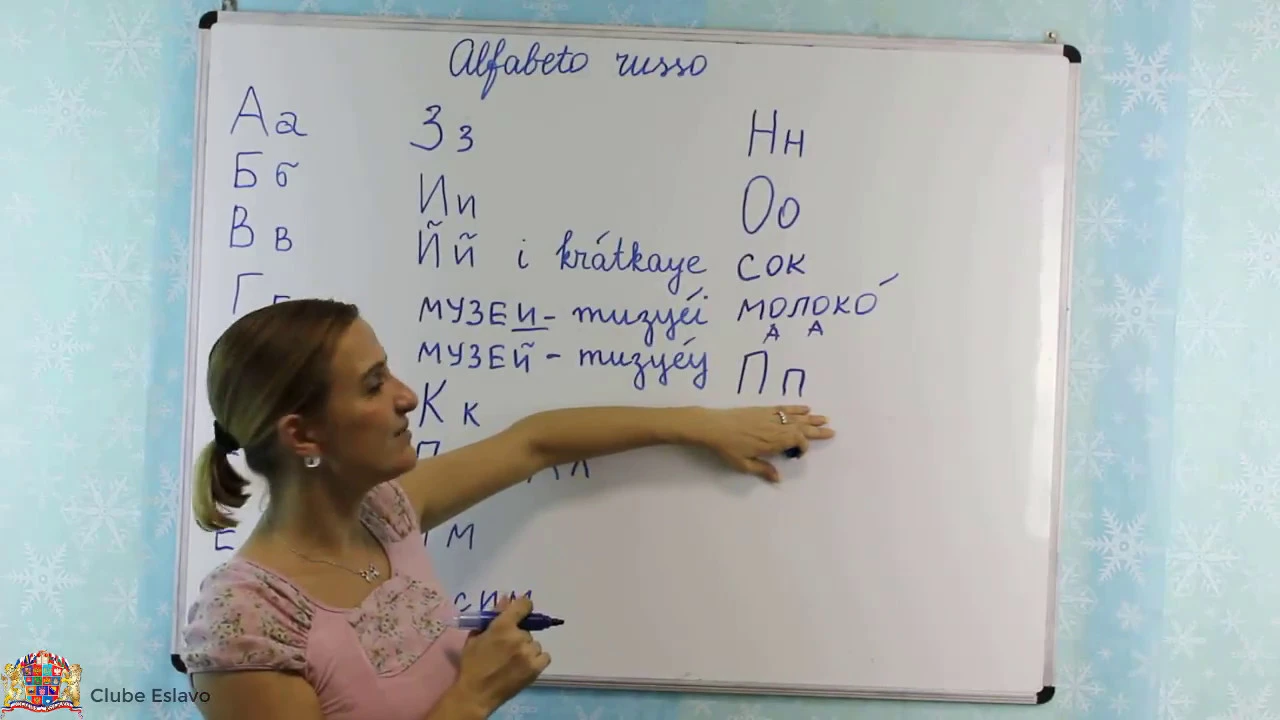 Alfabeto russo
А а
Б б
В в
Г
Е
З з
И и
Й й i krátkaye
МУЗЕИ - muzyéi
МУЗЕЙ - muzyéy
К к
Л л
м
сим
Н н
О о
СОК
МОЛОКО́
А А
П п
Clube Eslavo